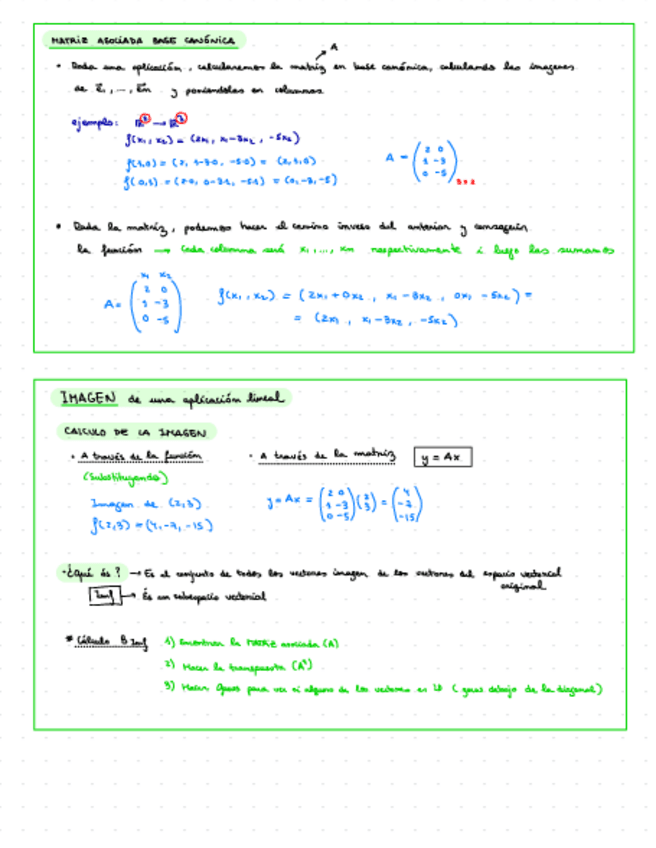 MATRIZ ASOCIADA BASE CANÓNICA
A
• Dada una aplicación, calcularemos la matriz en base canónica, calculando las imagenes
de e₁, ..., eₘ y poniéndolas en columnas
ejemplo: ℝ² → ℝ³
f(x₁, x₂) = (2x₁, x₁-3x₂, -5x₂)
f(1,0) = (2, 1-3·0, -5·0) = (2,1,0)
f(0,1) = (2·0, 0-3·1, -5·1) = (0,-3,-5)
A = (2 0
1 -3
0 -5) 3x2
• Dada la matriz, podemos hacer el camino inverso del anterior y conseguir
la función → Cada columna será x₁, ..., xₘ respectivamente i luego las sumamos
x₁ x₂
A = (2 0
1 -3
0 -5)
f(x₁, x₂) = (2x₁ + 0x₂, x₁ - 3x₂, 0x₁ - 5x₂) =
= (2x₁, x₁ - 3x₂, -5x₂)
IMAGEN de una aplicación lineal
CALCULO DE LA IMAGEN
• A través de la función
(Substituyendo)
Imagen de (2,3)
f(2,3) = (4,-7,-15)
• A través de la matriz y = Ax
y = Ax = (2 0
1 -3
0 -5) (2
3) = (4
-7
-15)
• ¿Qué és? → Es el conjunto de todos los vectores imagen de los vectores del espacio vectorial
original
Imf → És un subespacio vectorial
* Cálculo B Imf
1) Encontrar la matriz asociada (A)
2) Hacer la transpuesta (Aᵗ)
3) Hacer Gauss para ver si alguno de los vectores es LD (zeros debajo de la diagonal)